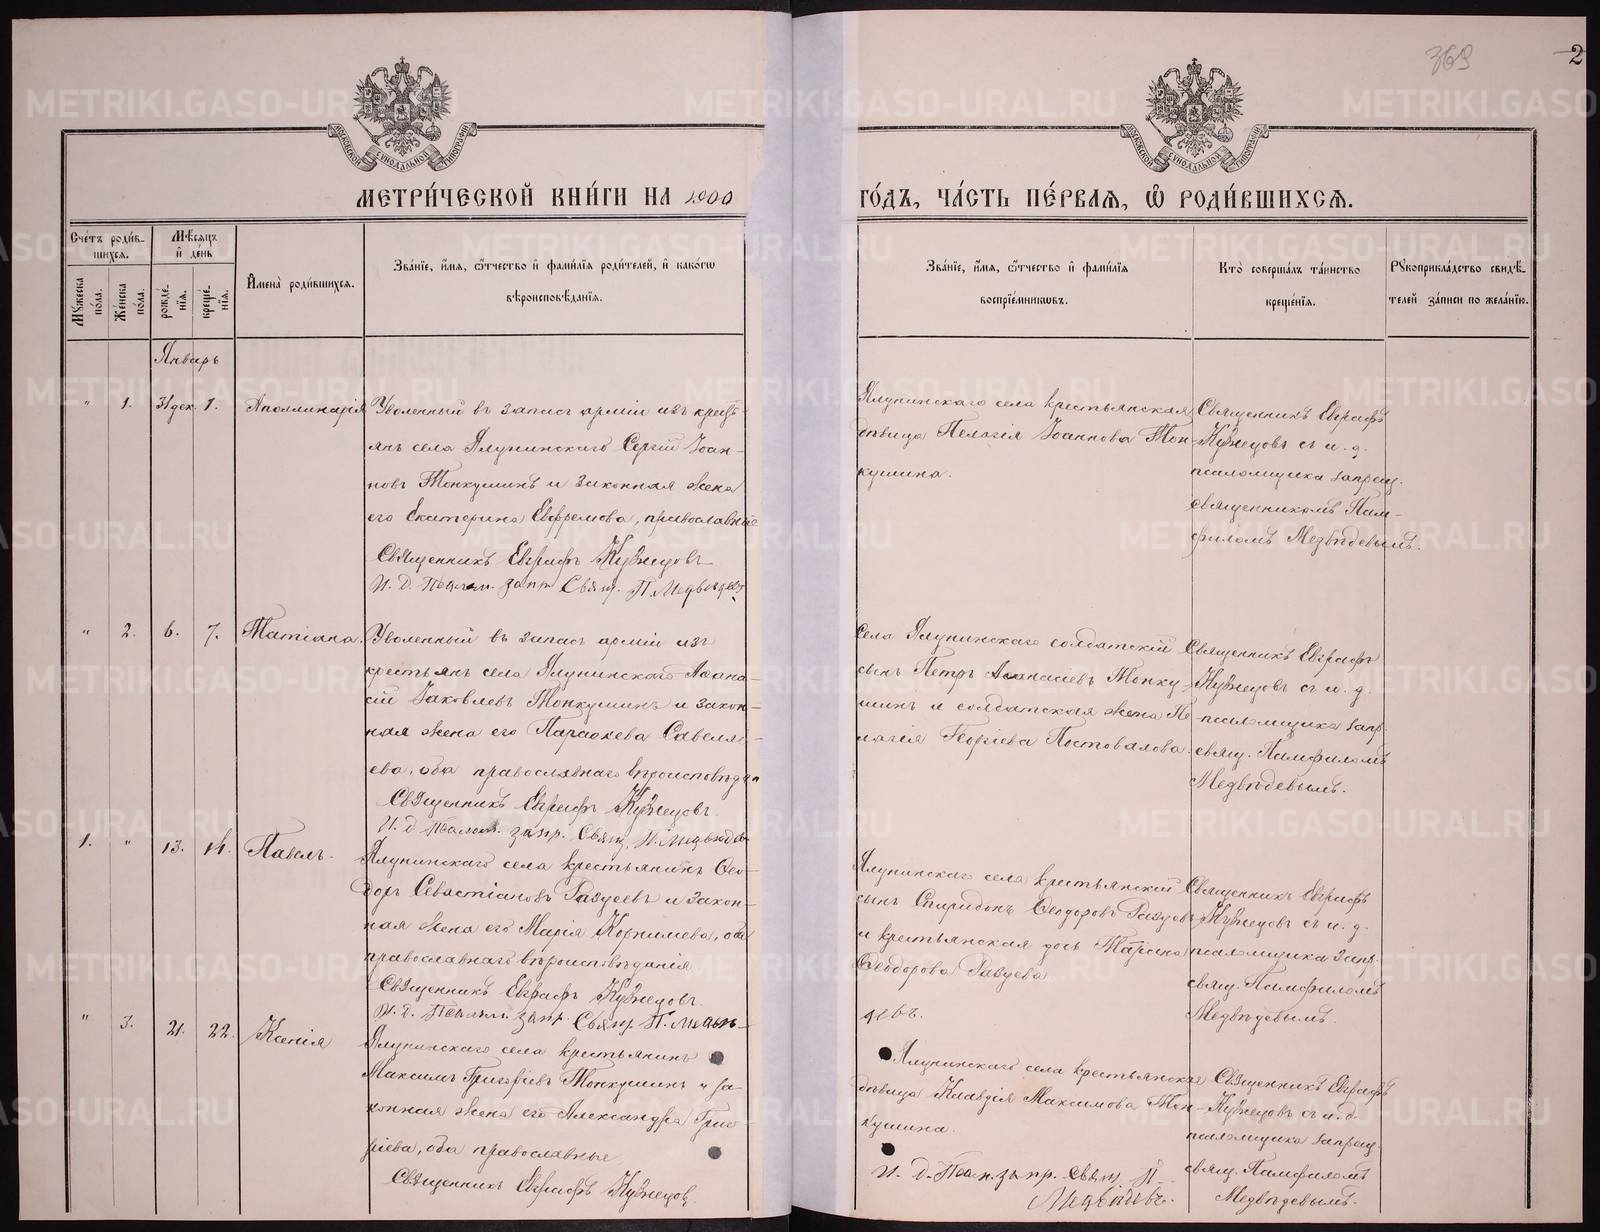 369
2
МЕТРИ́ЧЕСКОЙ КНИ́ГИ НА 1900
ГО́ДЪ, ЧА́СТЬ ПЕ́РВАѦ, Ѡ҆ РОДИ́ВШИХСѦ.
Сче́тъ роди́в-
шихся.
Мꙋжеска по́ла.
Же́нска по́ла.
Мѣ́сяцъ и҆ де́нь
рожде́нїѧ.
креще́нїѧ.
И҆мена̀ роди́вшихся.
Зва́нїе, и҆́мѧ, ѻ҆́тчество и҆ фами́лїѧ роди́телей, и҆ како́гѡ
вѣроисповѣ́данїѧ.
Зва́нїе, и҆́мѧ, ѻ҆́тчество и҆ фами́лїѧ
воспрїе́мникѡвъ.
Кто̀ соверша́лъ та́инство
креще́нїѧ.
Рꙋкоприкла́дство свидѣ́-
телей за́писи по жела́нїю.
Январь
" 1. 31 дек. 1. Аполлинарія
Уволенный въ запасъ арміи изъ кресть-
янъ села Ялунинскаго Сергій Іоан-
новъ Тонкушинъ и законная жена
его Екатерина Евфремова, православные
Священникъ Евграфъ Кузнецовъ
И. д. Псалом. запр. Свящ. П. Медведевъ
Ялунинскаго села крестьянская
дѣвица Пелагія Іоаннова Тон-
кушина.
Священникъ Евграфъ
Кузнецовъ съ и. д.
псаломщика запрещ.
священникомъ Пам-
филомъ Медвѣдевымъ.
" 2. 6. 7. Татіана.
Уволенный въ запасъ арміи изъ
крестьянъ села Ялунинскаго Аѳана-
сій Іаковлевъ Тонкушинъ и закон-
ная жена его Параскева Савелл-
ева, оба православнаго вѣроисповѣдан
Священникъ Евграфъ Кузнецовъ.
И. д. Псалом. запр. Свящ. П. Медвѣдев
Села Ялунинскаго солдатскій
сынъ Петръ Аѳанасіевъ Тонку-
шинъ и солдатская жена Пе-
лагія Георгіева Постовалова.
Священникъ Евграфъ
Кузнецовъ съ и. д.
псаломщика запр.
свящ. Памфиломъ
Медвѣдевымъ.
1. " 13. 14. Павелъ.
Ялунинскаго села крестьянинъ Ѳео-
доръ Севастіановъ Разуевъ и закон-
ная жена его Марія Корнилиева, оба
православнаго вѣроисповѣданія
Священникъ Евграфъ Кузнецовъ.
И. д. Псалом. запр. Свящ. П. Медвѣ-
Ялунинскаго села крестьянскій
сынъ Спиридонъ Ѳеодоровъ Разуевъ
и крестьянская дочь
Ѳеодорова Разуева
девъ.
Священникъ Евграфъ
Кузнецовъ съ и. д.
псаломщика запр.
свящ. Памфиломъ
Медвѣдевымъ.
" 3. 21. 22. Ксенія
Ялунинскаго села крестьянинъ
Максимъ Григоріевъ Тонкушинъ и за-
конная жена его Александра Григо-
ріева, оба православные
Священникъ Евграфъ Кузнецов
Ялунинскаго села крестьянская
дѣвица Клавдія Максимова Тон-
кушина.
И. д. Псал. запр. Свящ. П.
Медвѣдевъ.
Священникъ Евграфъ
Кузнецовъ съ и. д.
псаломщика запрещ.
свящ. Памфиломъ
Медвѣдевымъ.
METRIKI.GASO-URAL.RU